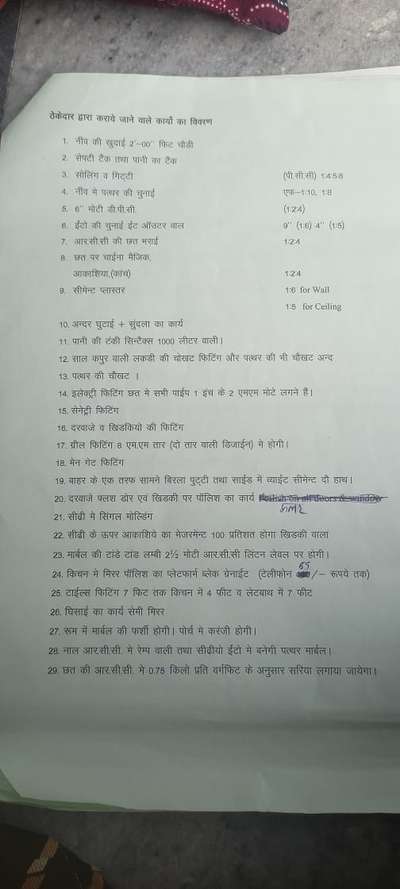 ठेकेदार द्वारा कराये जाने वाले कार्यो का विवरण
1. नींव की खुदाई 2'–00'' फिट चौडी
2. सेफ्टी टैंक तथा पानी का टैंक
3. सोलिंग व गिट्टी (पी.सी.सी) 1:4:5:8
4. नींव मे पत्थर की चुनाई एफ–1:10, 1:8
5. 6'' मोटी डी.पी.सी. (1:2:4)
6. ईंटो की चुनाई ईंट ऑउटर वाल 9'' (1:6) 4'' (1:5)
7. आर.सी.सी की छत भराई 1:2:4
8. छत पर चाईना मैजिक,
आकाशिया,(कांच) 1:2:4
9. सीमेन्ट प्लास्तर 1:6 for Wall
1:5 for Ceiling
10. अन्दर घुटाई + सुंदला का कार्य
11. पानी की टंकी सिन्टैक्स 1000 लीटर वाली।
12. साल कपुर वाली लकडी की चोखट फिटिंग और पत्थर की भी चौखट अन्द
13. पत्थर की चौखट ।
14. इलेक्ट्री फिटिंग छत मे सभी पाईप 1 इंच के 2 एमएम मोटे लगने हैं।
15. सेनेट्री फिटिंग
16. दरवाजे व खिडकियो की फिटिंग
17. ग्रील फिटिंग 8 एम.एम तार (दो तार वाली डिजाईन) मे होगी।
18. मेन गेट फिटिंग
19. बाहर के एक तरफ सामने बिरला पुट्टी तथा साईड मे व्याईट सीमेन्ट दो हाथ।
20. दरवाजे फ्लश डोर एवं खिडकी पर पॉलिश का कार्य Polish on all doors & wundoer
कलर
21. सीढी मे सिंगल मोल्डिंग
22. सीढी के ऊपर आकाशिये का मेजरमेन्ट 100 प्रतिशत होगा खिडकी वाला
23. मार्बल की टांडे टांड लम्बी 2½ मोटी आर.सी.सी लिंटन लेवल पर होगी।
24. किचन मे मिरर पॉलिश का प्लेटफार्म ब्लेक ग्रेनाईट (टेलीफोन 65/– रूपये तक)
25. टाईल्स फिटिंग 7 फिट तक किचन मे 4 फीट व लेटबाथ में 7 फीट
26. घिसाई का कार्य सेमी मिरर
27. रूम में मार्बल की फर्शी होगी। पोर्च मे करंजी होगी।
28. नाल आर.सी.सी. मे रेम्प वाली तथा सीढीयो ईंटो मे बनेगी पत्थर मार्बल।
29. छत की आर.सी.सी. मे 0.75 किलो प्रति वर्गफिट के अनुसार सरिया लगाया जायेगा।